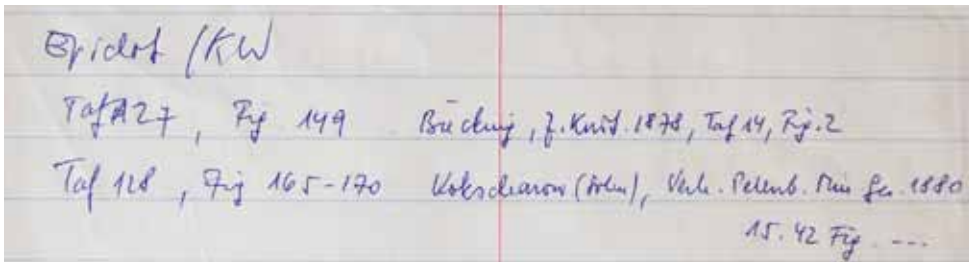 Epidot /KW
Taf 127, Fig 149 Bücking, Z. Krist. 1878, Taf 14, Fig. 2
Taf 128, Fig 165-170 Kokscharow (Sohn), Verh. Petersb. Min Ges. 1880
15. 42 Fig. ---